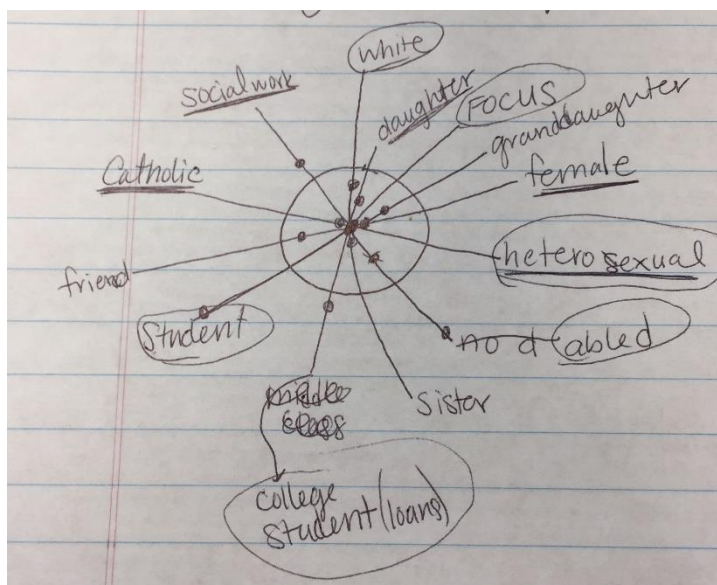 white
social work
daughter
FOCUS
granddaughter
Catholic
female
heterosexual
friend
Student
no d abled
middle
class
Sister
college
student (loans)